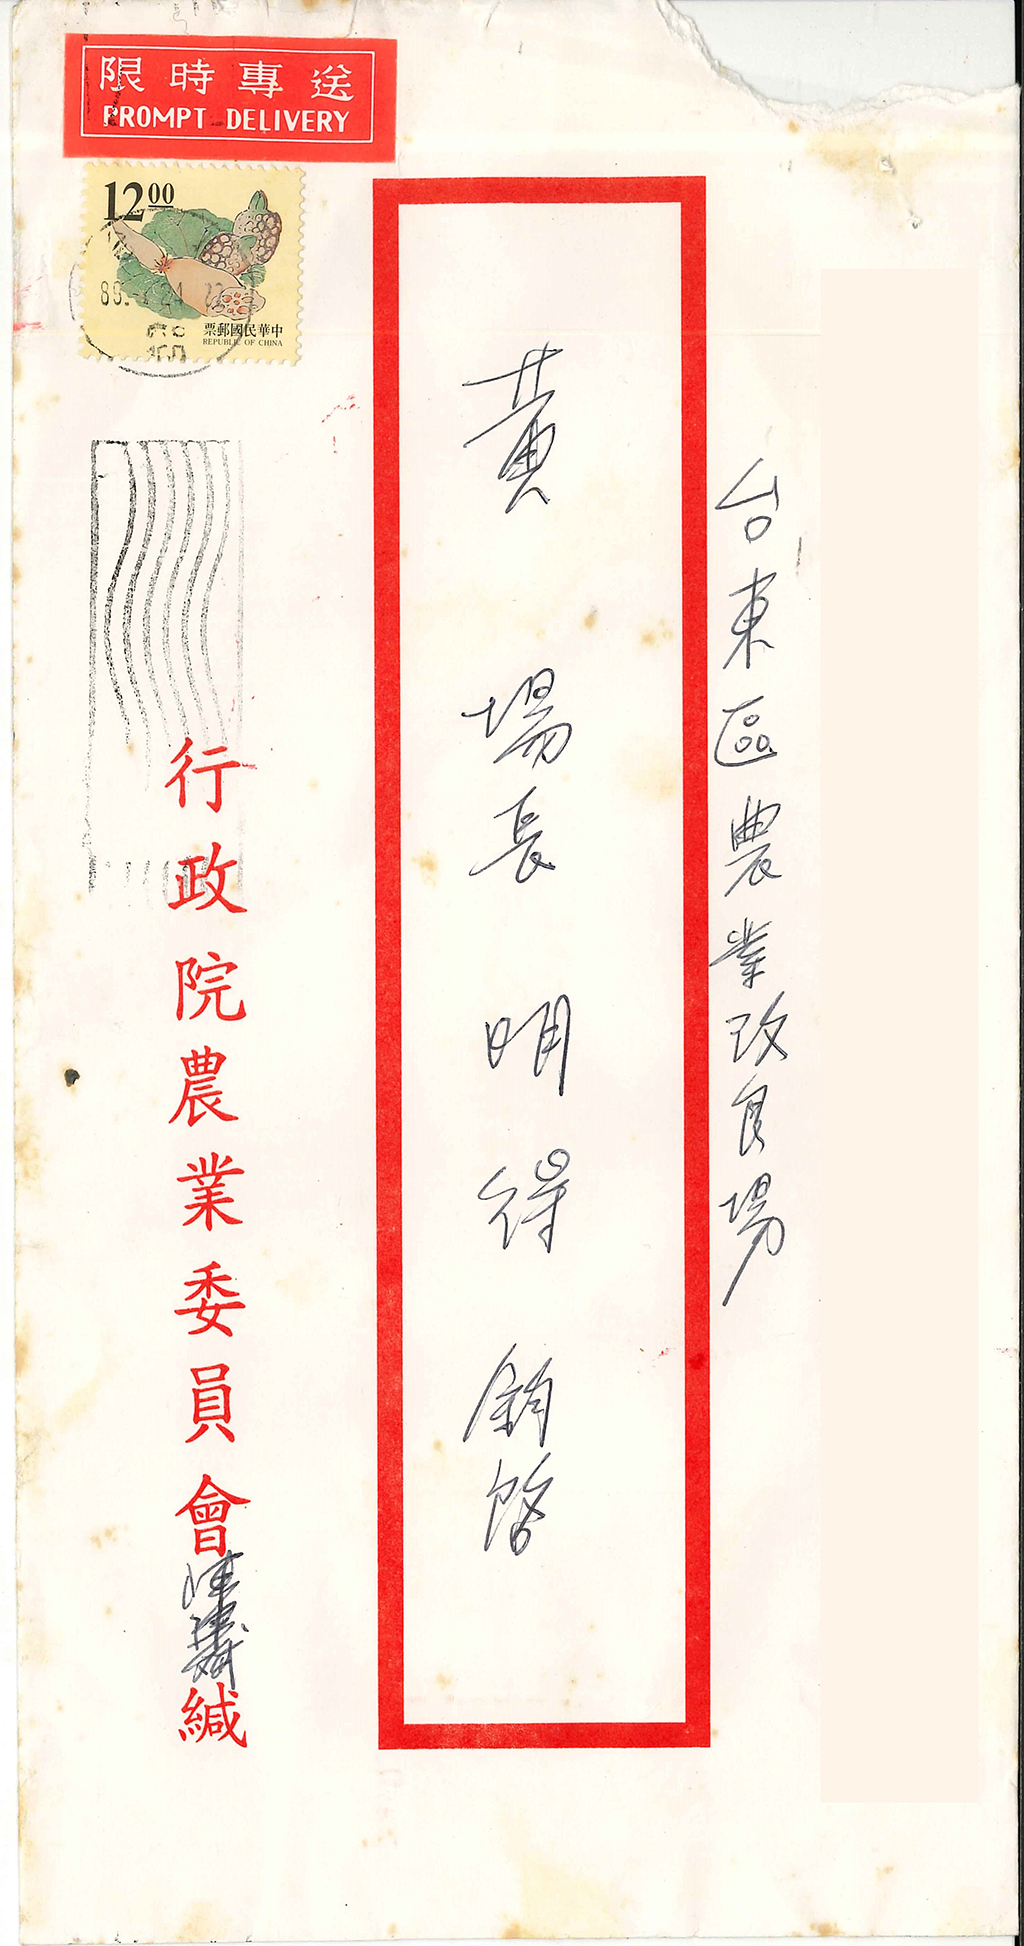 限時專送
PROMPT DELIVERY
12.00
中華民國郵票
REPUBLIC OF CHINA
台東區農業改良場
黃場長明得鈞啓
行政院農業委員會
緘